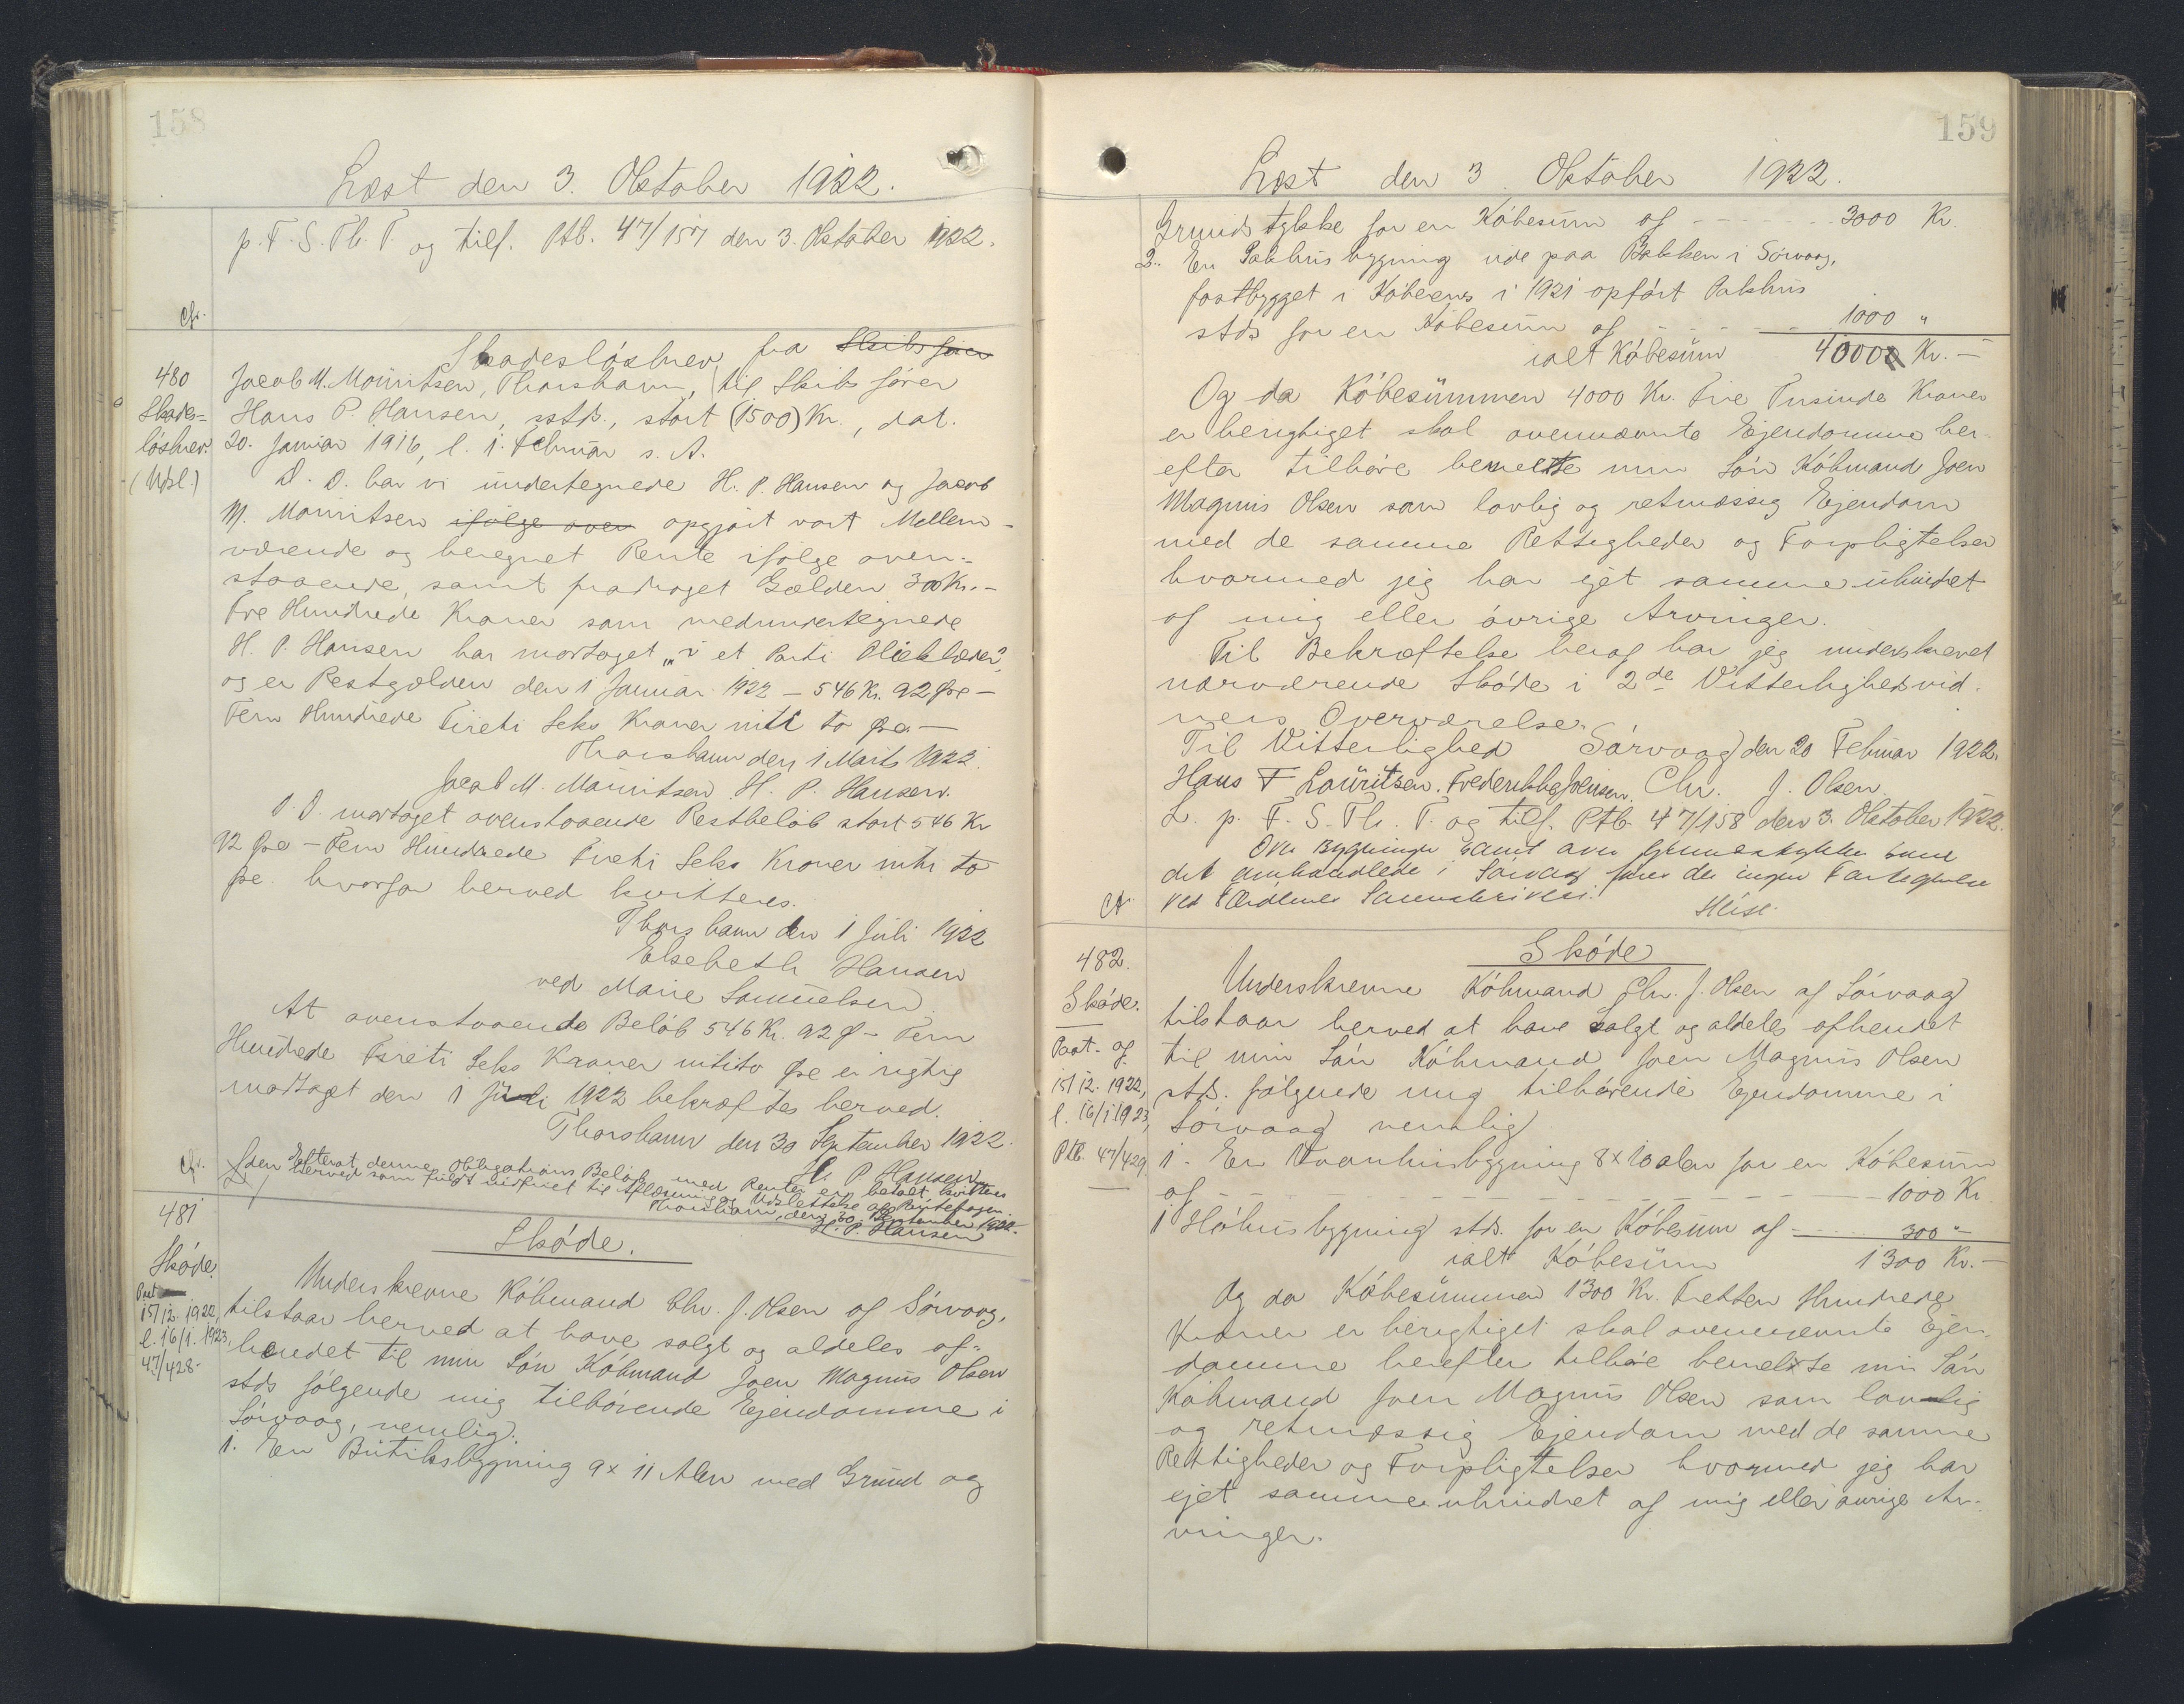 158
Læst den 3. Oktober 1922.
p. F. S. Th. T. og tilf. Ptb. 47/157 den 3. Oktober 1922.
Cfr.
480
Skades-
løsbrev.
(Udsl.)
Skadesløsbrev fra Skibsfører
Jacob M. Mouritsen, Thorshavn, til Skibsfører
Hans P. Hansen, sstds., stort (1500) Kr., dat.
20. Januar 1916, l. 1. Februar s. A.
D. D. har vi undertegnede H. P. Hansen og Jacob
M. Mouritsen ifølge oven opgjort vort Mellem-
værende og beregnet Rente ifølge oven-
staaende, samt fradraget Gælden 300 Kr. -
Tre Hundrede Kroner som medundertegnede
H. P. Hansen har modtaget „i et Parti Olieklæder"
og er Restgælden den 1 Januar 1922 - 546 Kr. 92 Øre -
Fem Hundrede Fireti Seks Kroner niti to Øre -
Thorshavn den 1 Marts 1922.
Jacob M. Mouritsen H. P. Hansen.
D. D. modtaget ovenstaaende Restbeløb stort 546 Kr
92 Øre - Fem Hundrede Fireti Seks Kroner niti to
Øre hvorfor herved kvitteres.
Thorshavn den 1 Juli 1922
Elsebeth Hansen
ved Marie Samuelsen
At ovenstaaende Beløb 546 Kr. 92 Ø - Fem
Hundrede Fireti Seks Kroner nitito Øre er rigtig
modtaget den 1 Juli 1922 bekræftes herved.
Thorshavn den 30 September 1922.
H. P. Hansen
Cfr.
Efterat denne Obligations Beløb med Renter er betalt, kvitteres
den herved som fuldt indfriet til Aflæsning og Udslettelse af Pantebogen.
Thorshavn, den 30 September 1922.
H. P. Hansen
481
Skøde.
Paat
15/12. 1922,
l. 16/1. 1923,
47/428.
Skøde.
Underskrevne Købmand Chr. J. Olsen af Sörvaag,
tilstaar herved at have solgt og aldeles af-
hendet til min Søn Købmand Joen Magnus Olsen
stds følgende mig tilhørende Ejendomme i
Sörvaag, nemlig.
1. En Butiksbygning 9 x 11 Alen med Grund og
159
Læst den 3. Oktober 1922.
Grundstykke for en Købesum af - - - - 3000 Kr.
2. En Pakhusbygning ude paa Bakken i Sörvaag,
fastbygget i Købers i 1921 opført Pakhus
stds for en Købesum af - - - - 1000 "
ialt Købesum 4000 Kr. -
Og da Købesummen 4000 Kr. Fire Tusinde Kroner
er berigtiget skal ovennævnte Ejendomme her-
efter tilhøre bemeldte min Søn Købmand Joen
Magnus Olsen som lovlig og retmæssig Ejendom
med de samme Rettigheder og Forpligtelser
hvormed jeg har ejet samme uhindret
af mig eller øvrige Arvinger.
Til Bekræftelse heraf har jeg underskrevet
nærværende Skøde i 2de Vitterlighedsvid-
ners Overværelse.
Til Vitterlighed Sørvaag den 20 Februar 1922.
Hans F Lauritsen. Frederikke Joensen. Chr. J. Olsen.
L. p. F. S. Th. T. og tilf. Ptb. 47/158 den 3. Oktober 1922.
Over Bygninger samt over Grundstykker som
det omhandlede i Sörvaag føres der ingen Fortegnelse
ved Færøernes Sorenskriveri.
Heise.
Cfr.
482.
Skøde.
Paat. af
15/12. 1922,
l. 16/1 1923,
Ptb. 47/429.
Skøde
Underskrevne Købmand Chr. J. Olsen af Sörvaag
tilstaar herved at have solgt og aldeles afhendet
til min Søn Købmand Joen Magnus Olsen
stds. følgende mig tilhørende Ejendomme i
Sörvaag nemlig
1. En Vaanhusbygning 8 x 10 alen for en Købesum
af - - - - 1000 Kr.
1 Høhusbygning stds. for en Købesum af - - 300 "
ialt Købesum 1300 Kr. -
Og da Købesummen 1300 Kr. Tretten Hundrede
Kroner er berigtiget skal ovennævnte Ejen-
domme herefter tilhøre bemeldte min Søn
Købmand Joen Magnus Olsen som lovlig
og retmæssig Ejendom med de samme
Rettigheder og Forpligtelser hvormed jeg har
ejet samme uhindret af mig eller øvrige Ar-
vinger.